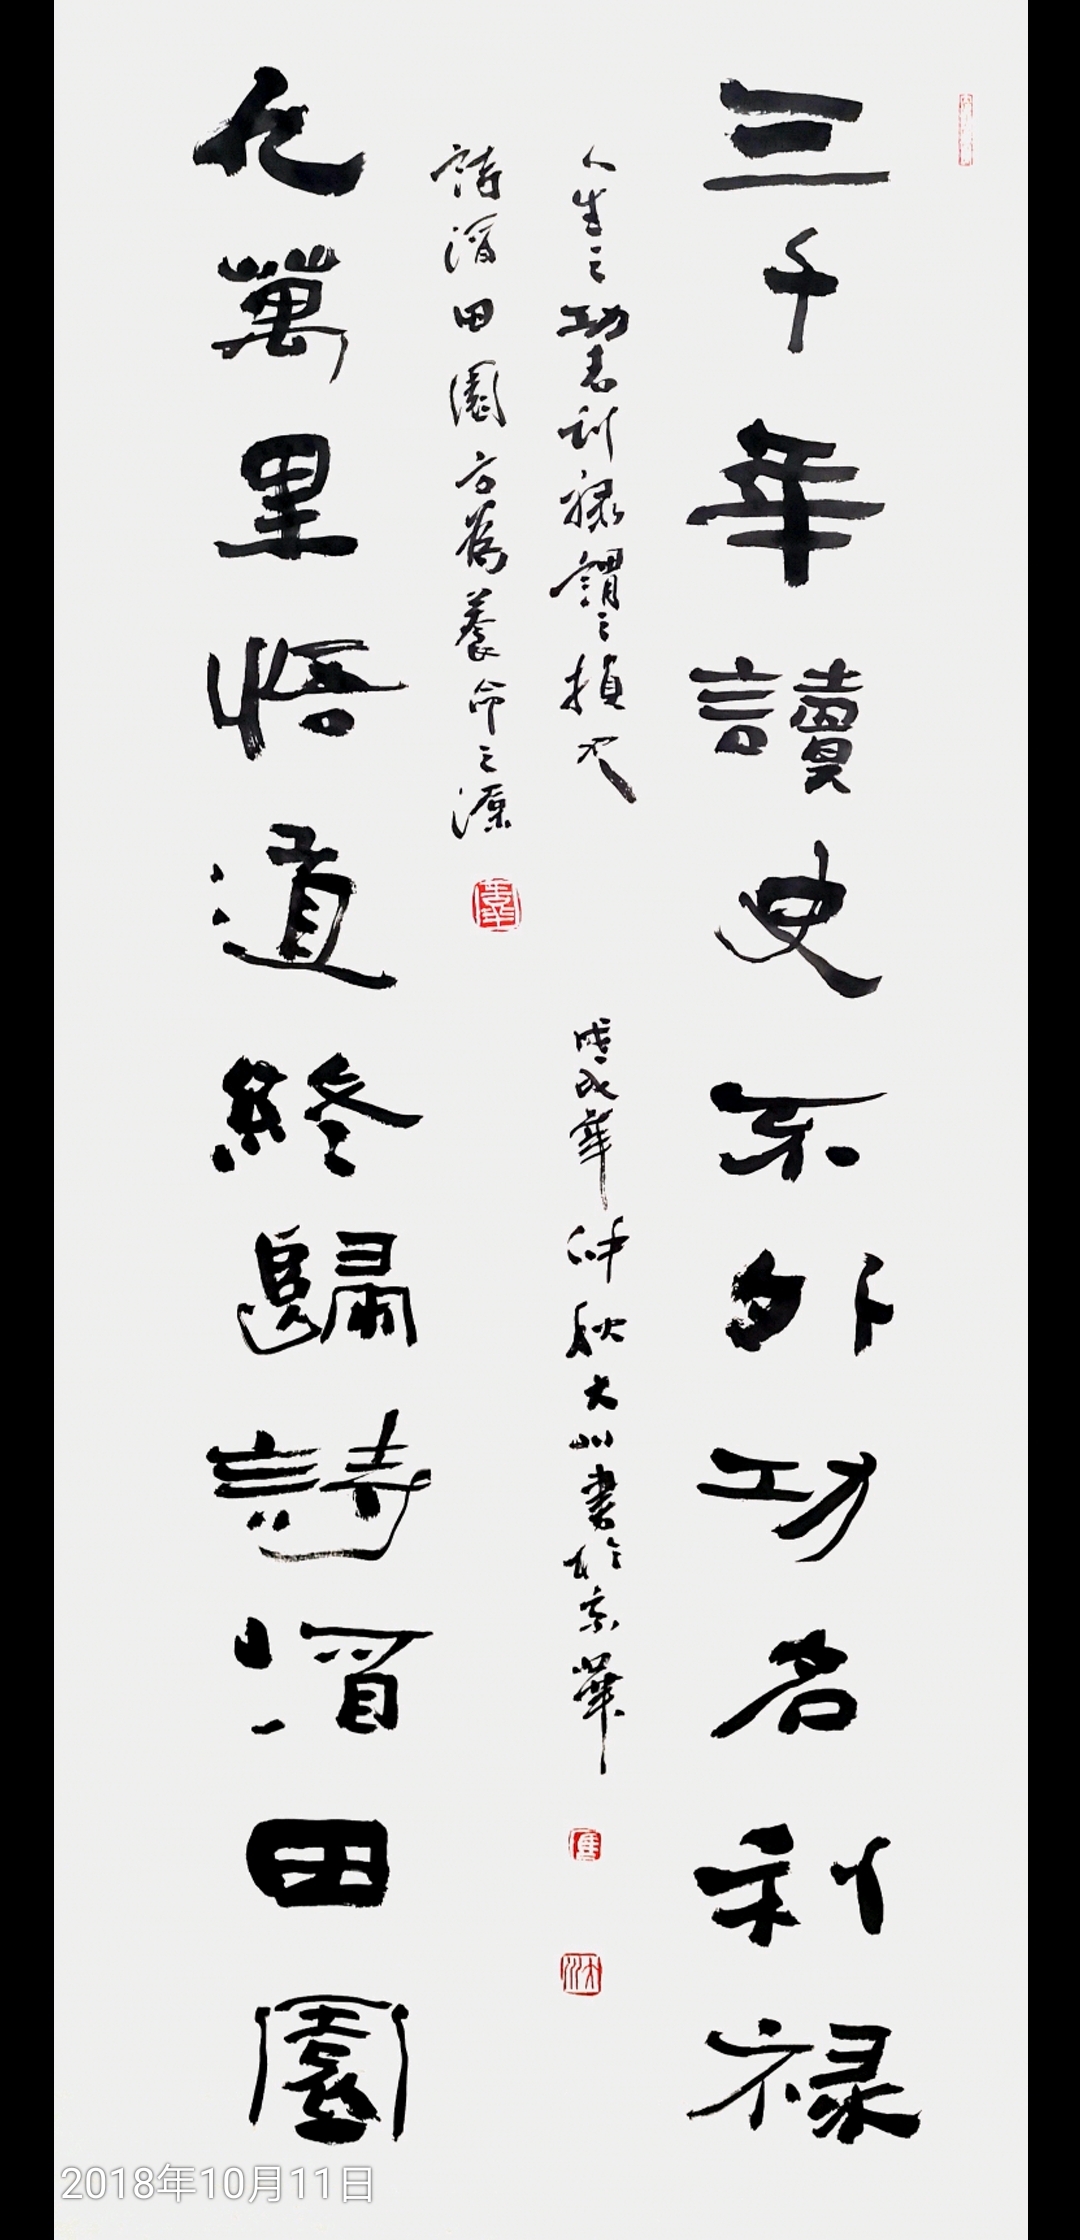 三千年讀史不外功名利祿
九萬里悟道終歸詩酒田園
人生之功名利祿謂之損
詩酒田園方為養命之源
戊戌年仲秋大川書於京華
2018年10月11日